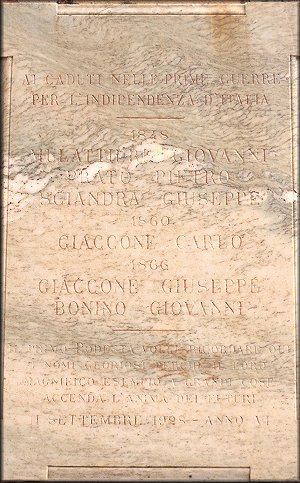 AI CADUTI NELLE PRIME GUERRE
PER L'INDIPENDENZA D'ITALIA
1848
MULATTIERI GIOVANNI
PRATO PIETRO
SCIANDRA GIUSEPPE
1860
GIACCONE CARLO
1866
GIACCONE GIUSEPPE
BONINO GIOVANNI
IL PRIMO PODESTÀ VOLLE RICORDARE QUI
I NOMI GLORIOSI PERCHÈ IL LORO
MAGNIFICO ESEMPIO A GRANDI COSE
ACCENDA L'ANIMA DEI FUTURI
1 SETTEMBRE 1928 - ANNO VI